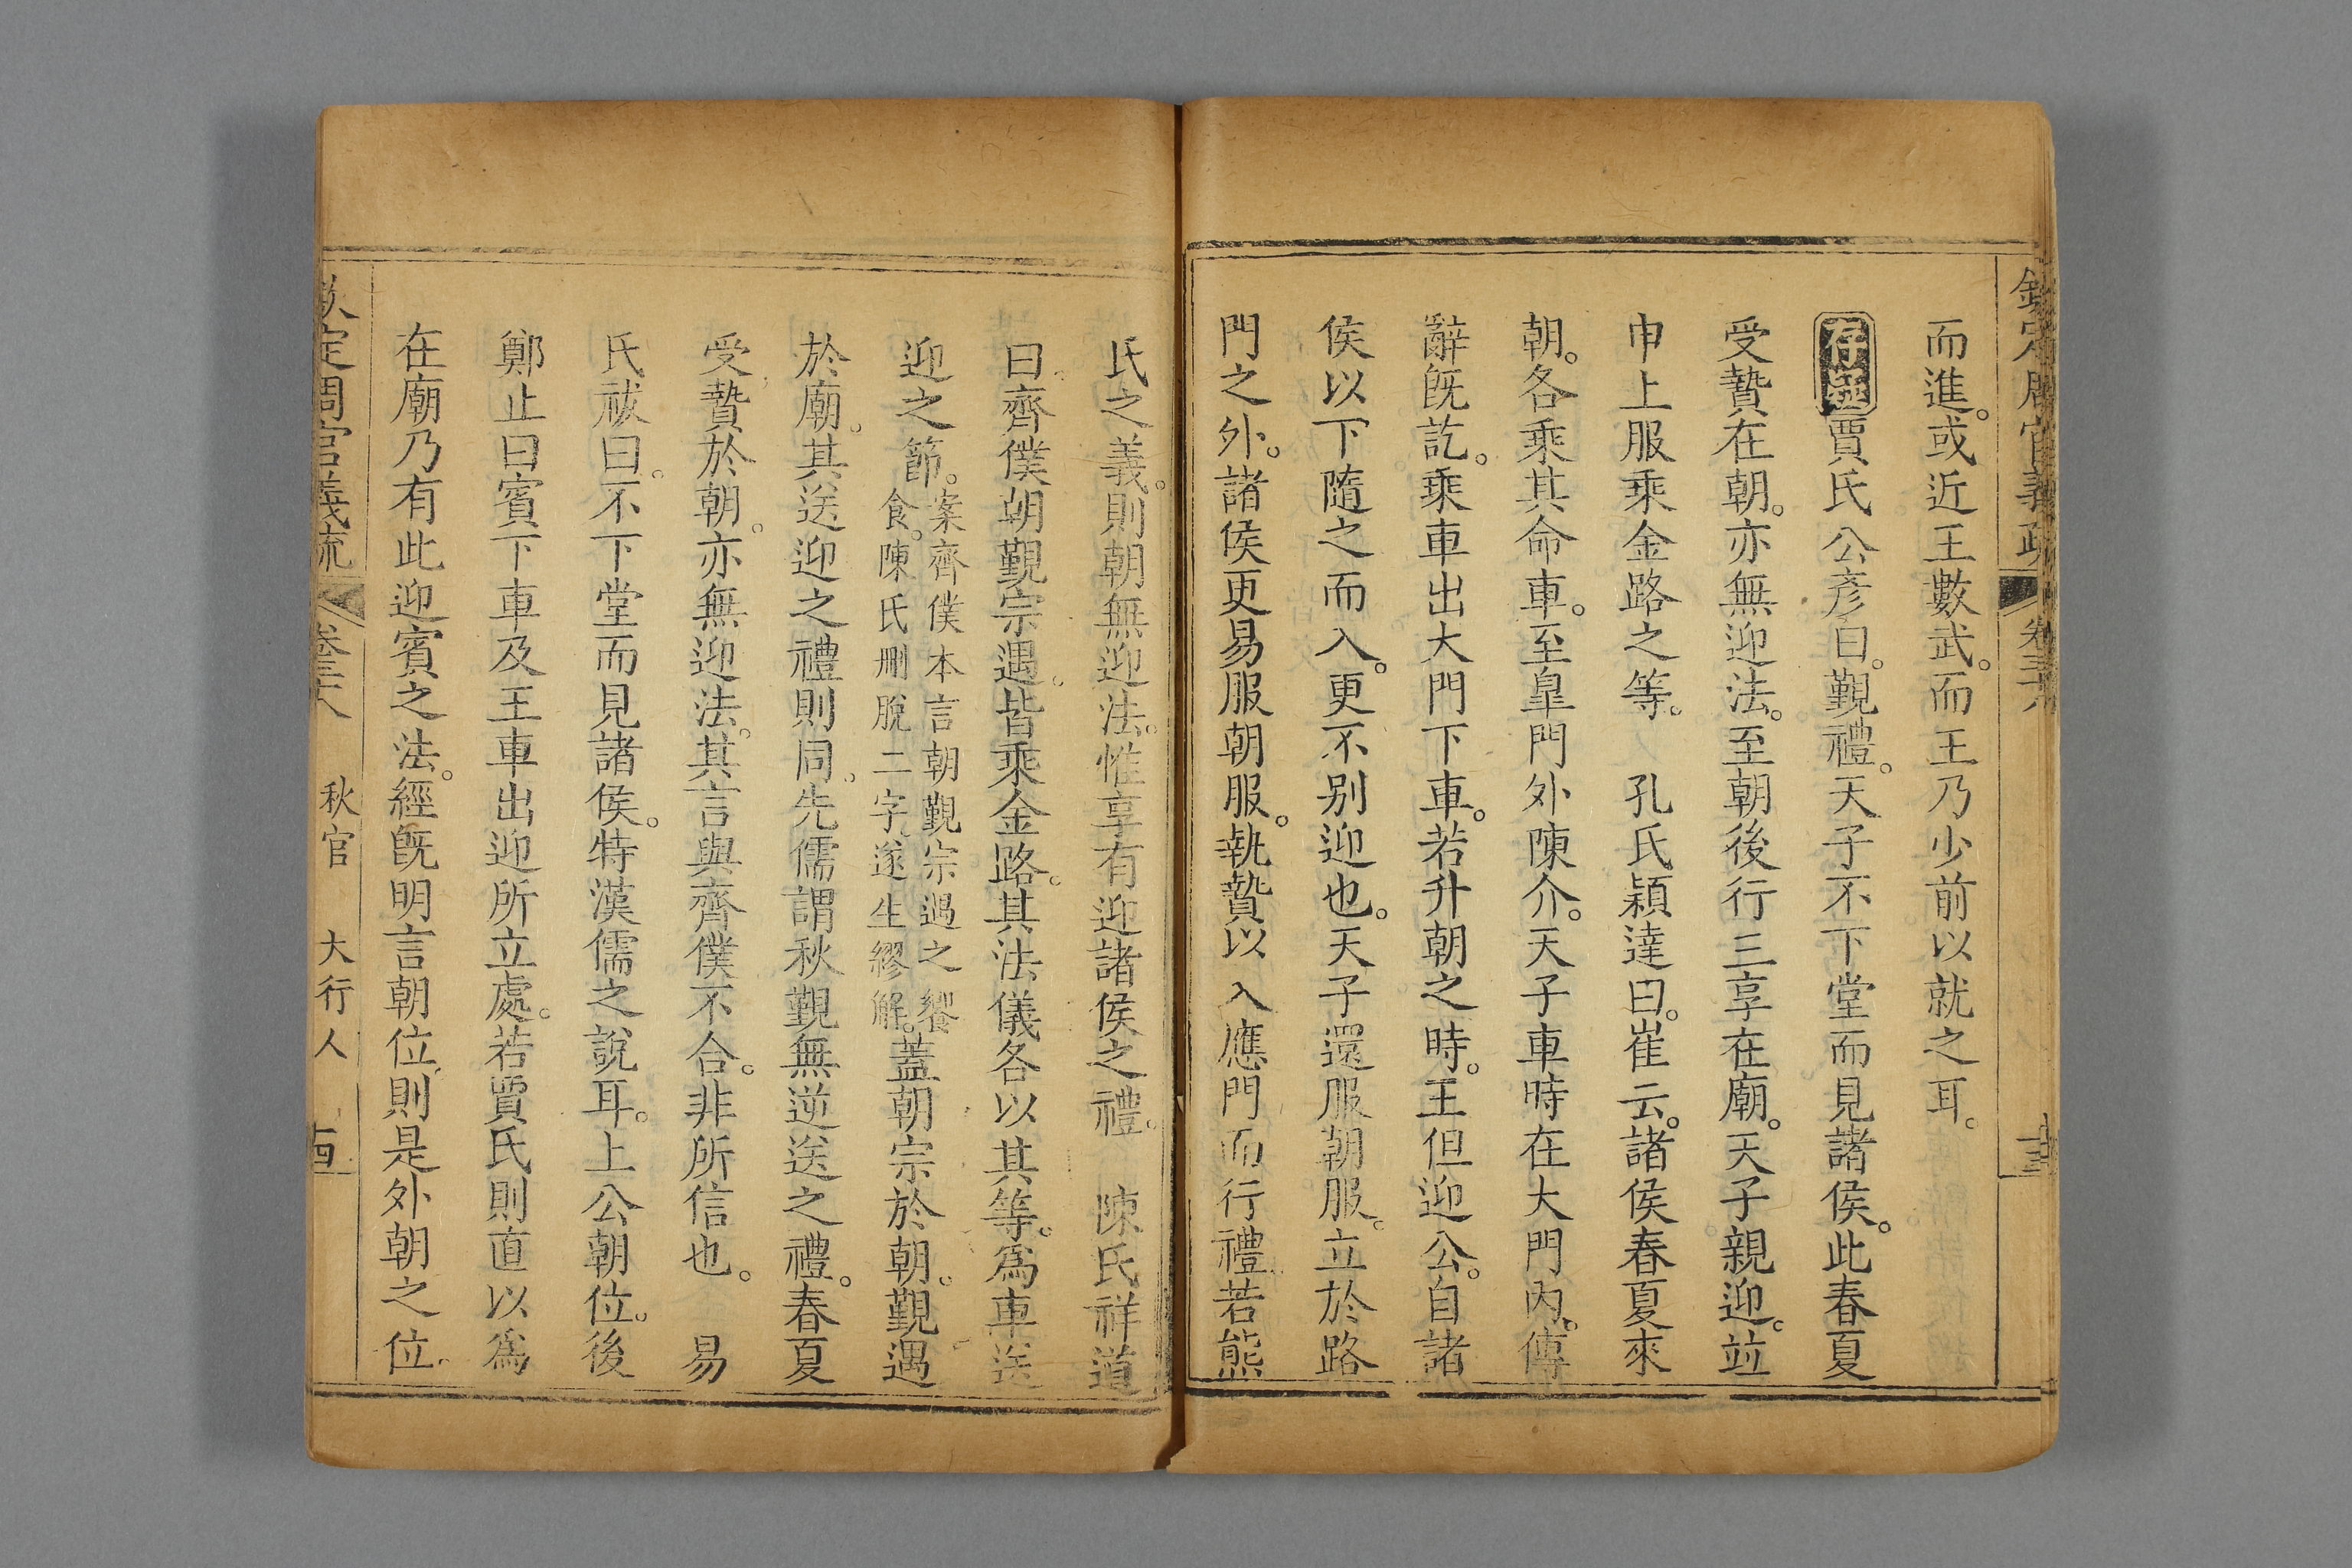 欽定周官義疏 卷三十八
而進。或近王數武。而王乃少前以就之耳。
存疑 賈氏公彥曰。覲禮。天子不下堂而見諸侯。此春夏
受贄在朝。亦無迎法。至朝後行三享在廟。天子親迎。竝
申上服乘金路之等。 孔氏穎達曰。崔云。諸侯春夏來
朝。各乘其命車。至皐門外陳介。天子車時在大門內。傳
辭旣訖。乘車出大門下車。若升朝之時。王但迎公。自諸
侯以下隨之而入。更不别迎也。天子還服朝服。立於路
門之外。諸侯更易服朝服。執贄以入應門而行禮。若熊
氏之義。則朝無迎法。惟享有迎諸侯之禮。 陳氏祥道
曰。齊僕朝覲宗遇。皆乘金路。其法儀各以其等。爲車送
迎之節。案齊僕本言朝覲宗遇之饗食。陳氏刪脫二字。遂生繆解。蓋朝宗於朝。覲遇
於廟。其送迎之禮則同。先儒謂秋覲無逆送之禮。春夏
受贄於朝。亦無迎法。其言與齊僕不合。非所信也。 易
氏祓曰。不下堂而見諸侯。特漢儒之說耳。上公朝位。後
鄭止曰賓下車及王車出迎所立處。若賈氏則直以爲
在廟乃有此迎賓之法。經旣明言朝位。則是外朝之位。
欽定周官義疏 卷三十八 秋官 大行人